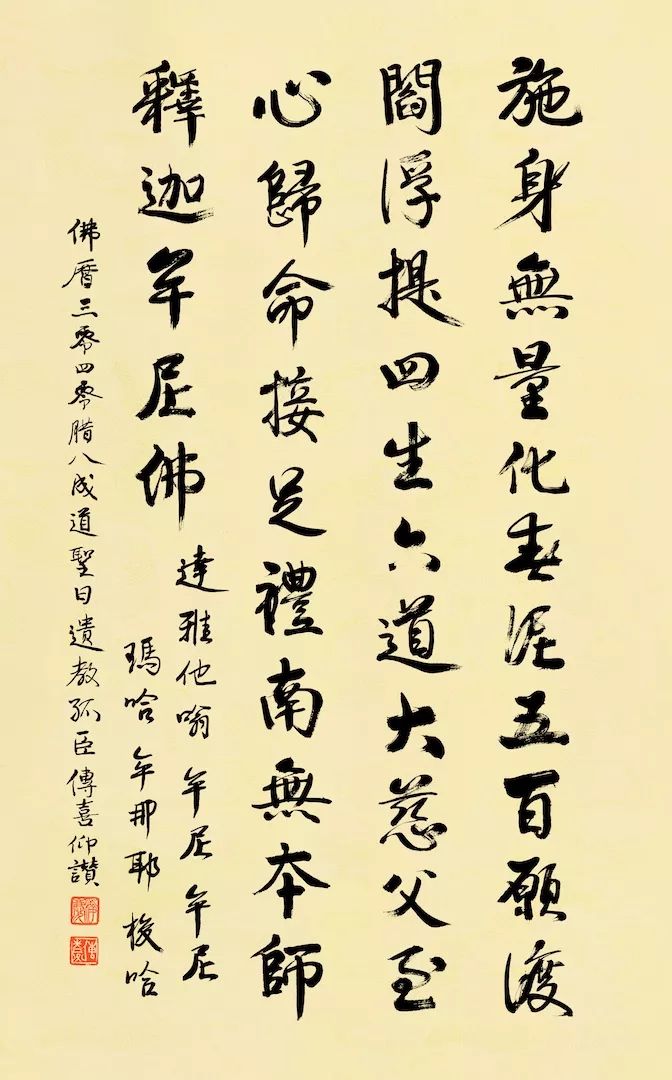 施身無量化春泥五百願渡
閻浮提四生六道大慈父至
心歸命接足禮南無本師
釋迦牟尼佛
達雅他嗡 牟尼牟尼
瑪哈牟那耶 梭哈
佛曆三零四零臘八成道聖日遺教孤臣傳喜仰讚